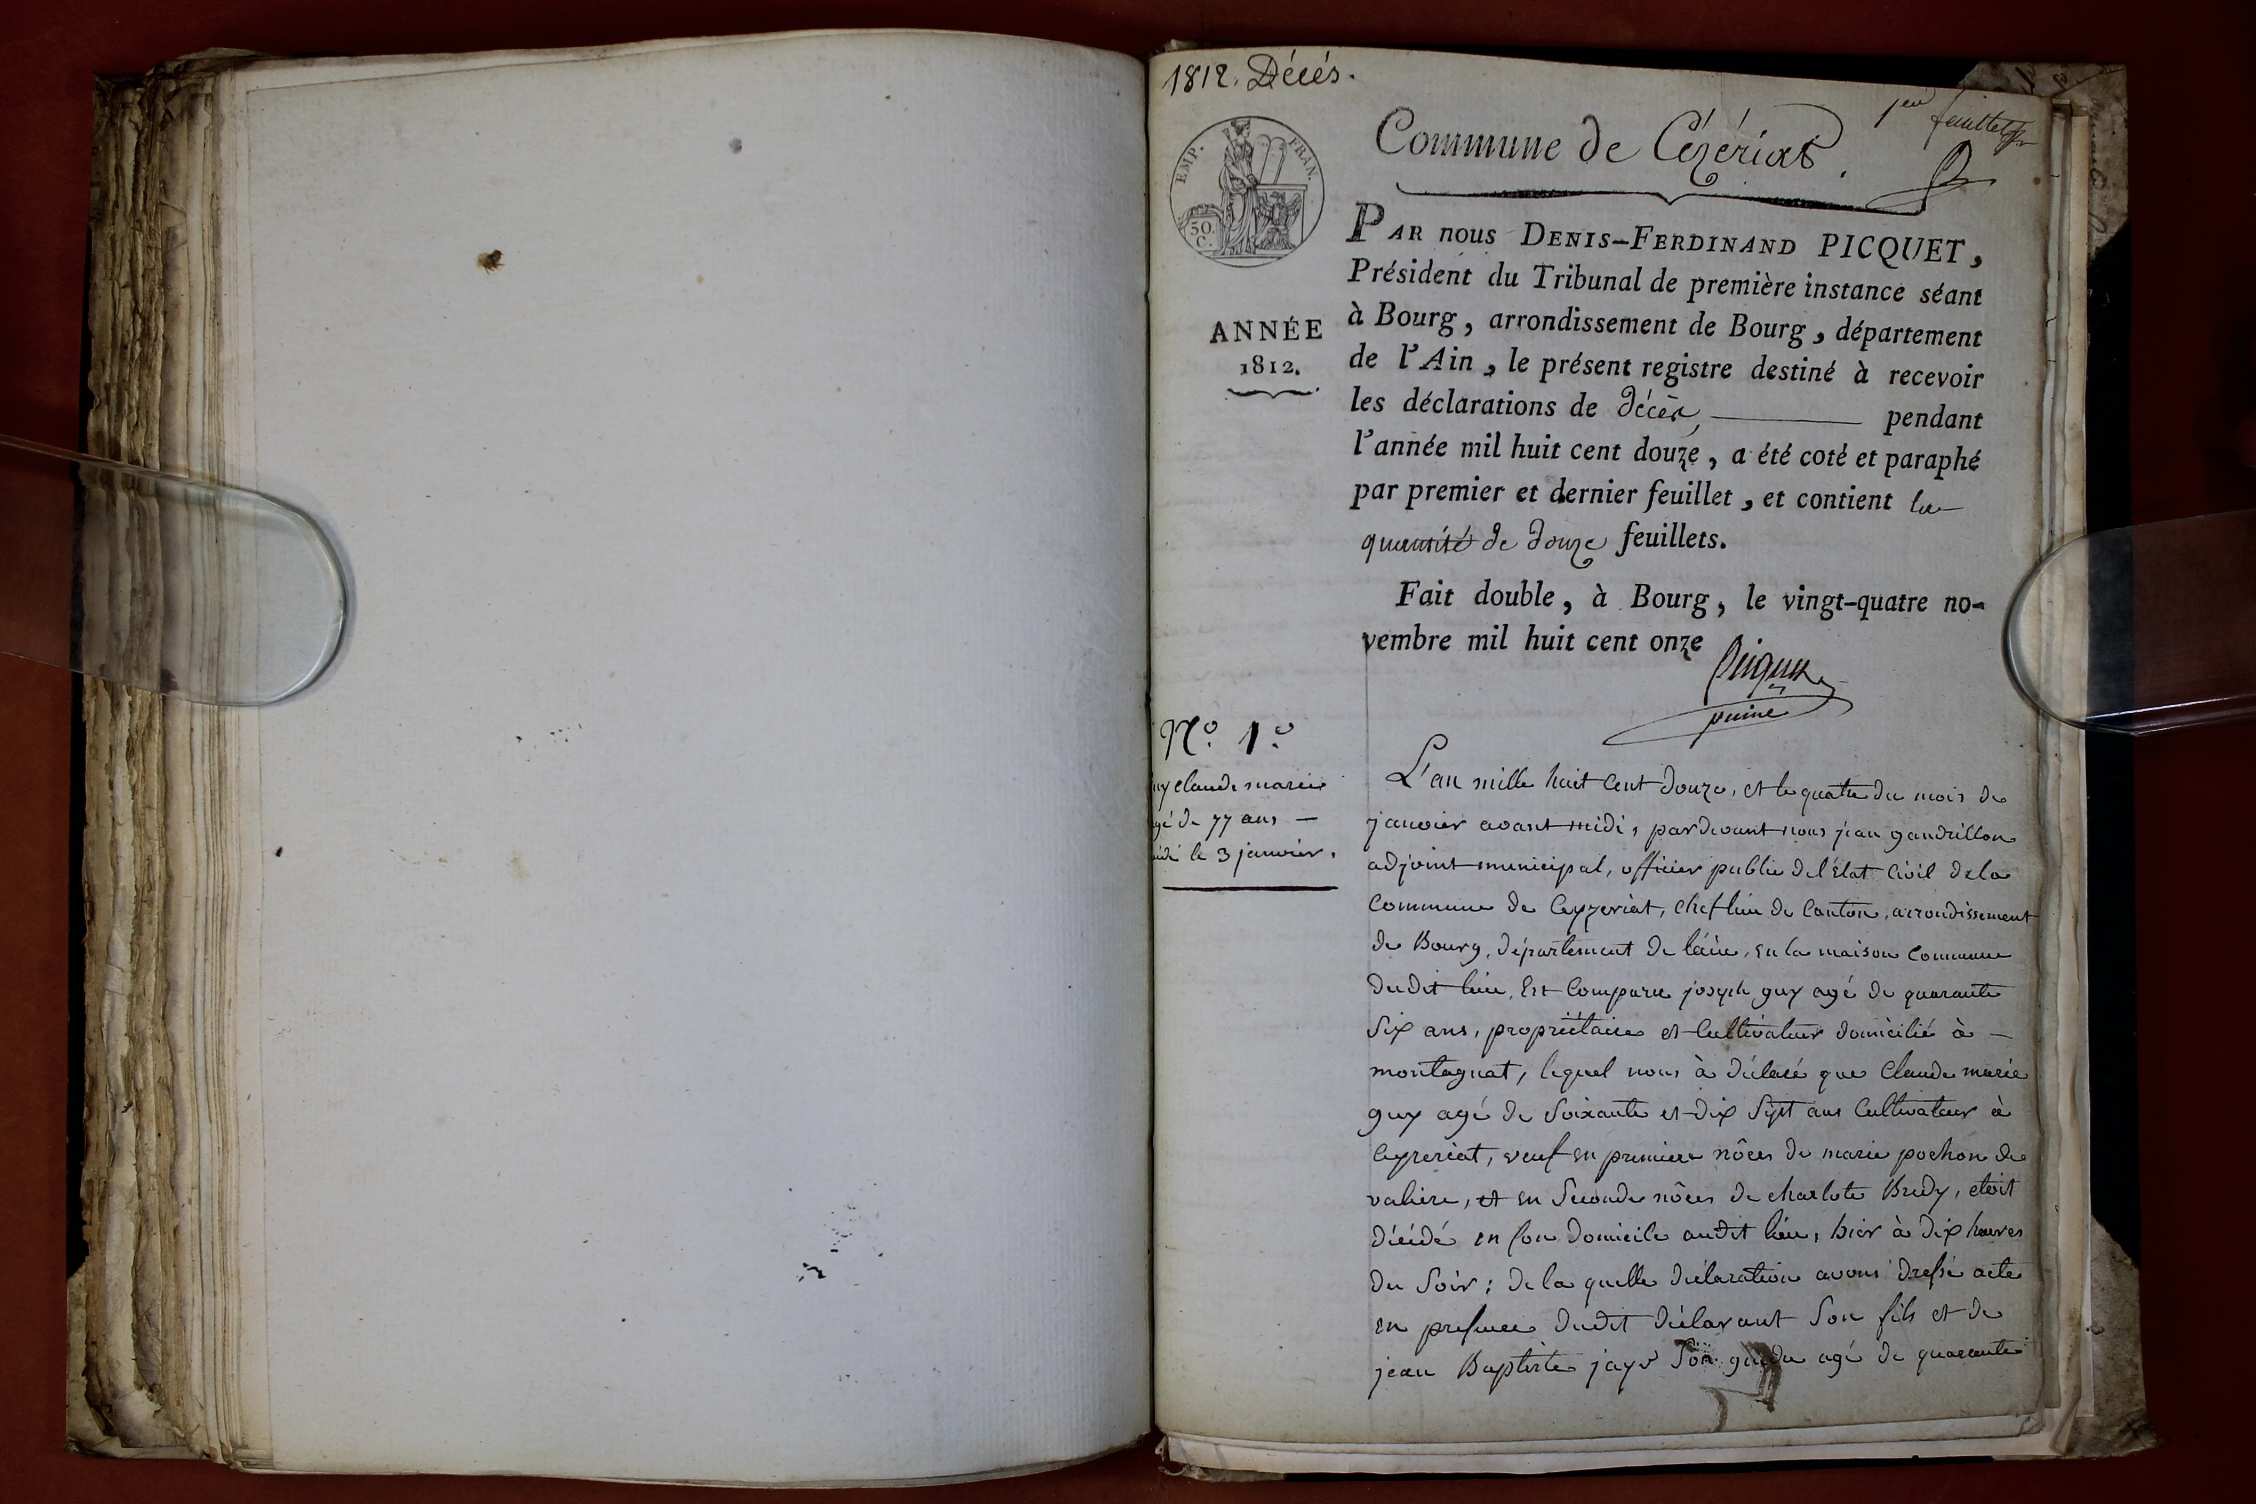 1812. Décés.
1er feuillet
Commune de Cézériat.
EMP. FRAN.
50. C.
PAR nous DENIS-FERDINAND PICQUET,
Président du Tribunal de première instance séant
à Bourg, arrondissement de Bourg, département
de l'Ain, le présent registre destiné à recevoir
les déclarations de décès, pendant
l'année mil huit cent douze, a été coté et paraphé
par premier et dernier feuillet, et contient la
quantité de douze feuillets.
Fait double, à Bourg, le vingt-quatre no-
vembre mil huit cent onze
Picquet
ANNÉE
1812.
No. 1o.
guy claude marie
agé de 77 ans —
décédé le 3 janvier.
L'an mille huit Cent douze, et le quatre du mois de
janvier avant midi, pardevant nous jean gandillon
adjoint municipal, officier public de l'Etat Civil dela
Commune de Ceyzeriat, chef lieu de Canton, arrondissement
de Bourg, département de l'ain, en la maison Commune
dudit lieu, Est Comparu joseph guy agé de quarante
Six ans, propriétaire et Cultivateur domicilié à —
montagnat, lequel nous à déclaré que Claude marie
guy agé de Soixante et dix Sept ans Cultivateur à
Ceyzeriat, veuf en premiere nôces de marie pochon de
, et en Seconde nôces de charlote Bredy, etoit
décédé en Son domicile audit lieu, hier à dix heures
du Soir; de la quelle déclaration avons dressé acte
en presence dudit déclarant Son fils et de
jean Baptiste jayr Son gendre agé de quarante